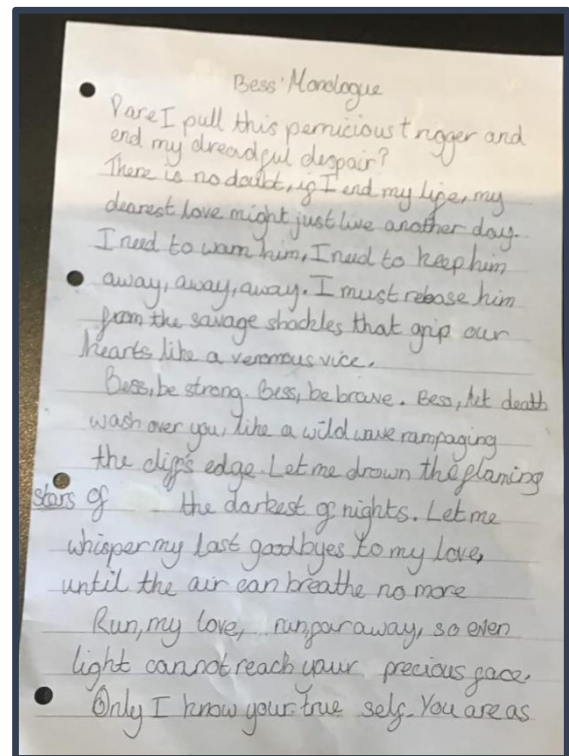 Bess' Monologue
Dare I pull this pernicious trigger and
end my dreadful despair?
There is no doubt, if I end my life, my
dearest love might just live another day.
I need to warn him, I need to keep him
away, away, away. I must release him
from the savage shackles that grip our
hearts like a venomous vice.
Bess, be strong. Bess, be brave. Bess, let death
wash over you, like a wild wave rampaging
the cliff's edge. Let me drown the flaming
stars of the darkest of nights. Let me
whisper my last goodbyes to my love,
until the air can breathe no more
Run, my love, run, far away, so even
light cannot reach your precious face.
Only I know your true self. You are as